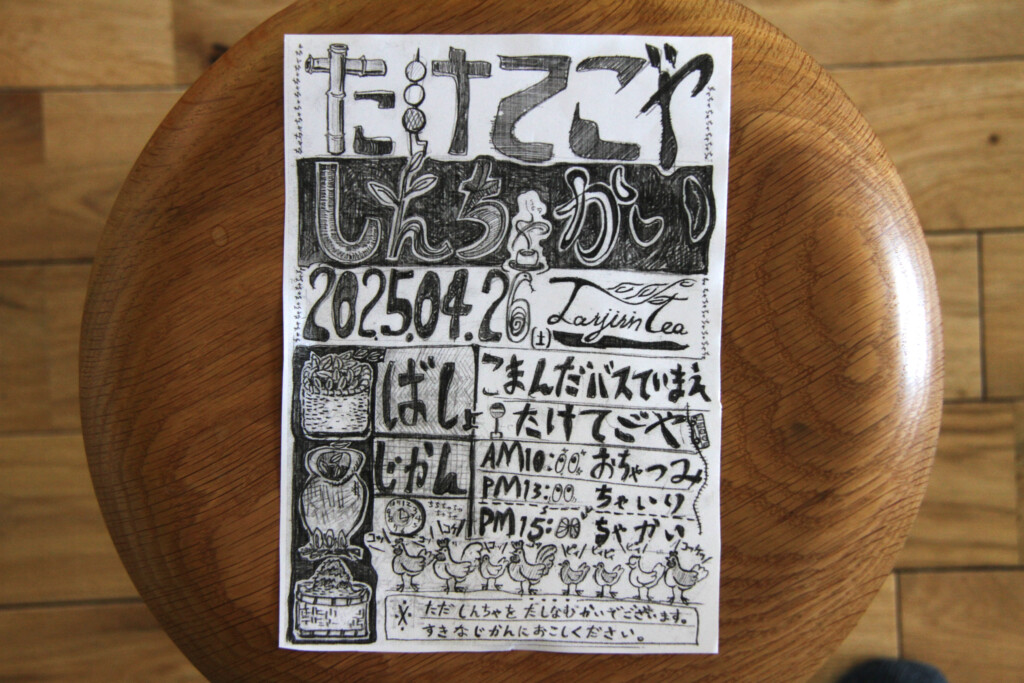 たけてごや
しんちゃかい
2025.04.26(土)
Tarjirin Tea
ばしょ
こまんだバスていまえ
たけてごや
じかん
AM10:00 おちゃつみ
PM13:00 ちゃいり
PM15:00 ちゃかい
コケコッコー
コッ
ピッ
ピッ
コケッ
※ ただしんちゃをだしなむかいでございます。
すきなじかんにおこしください。